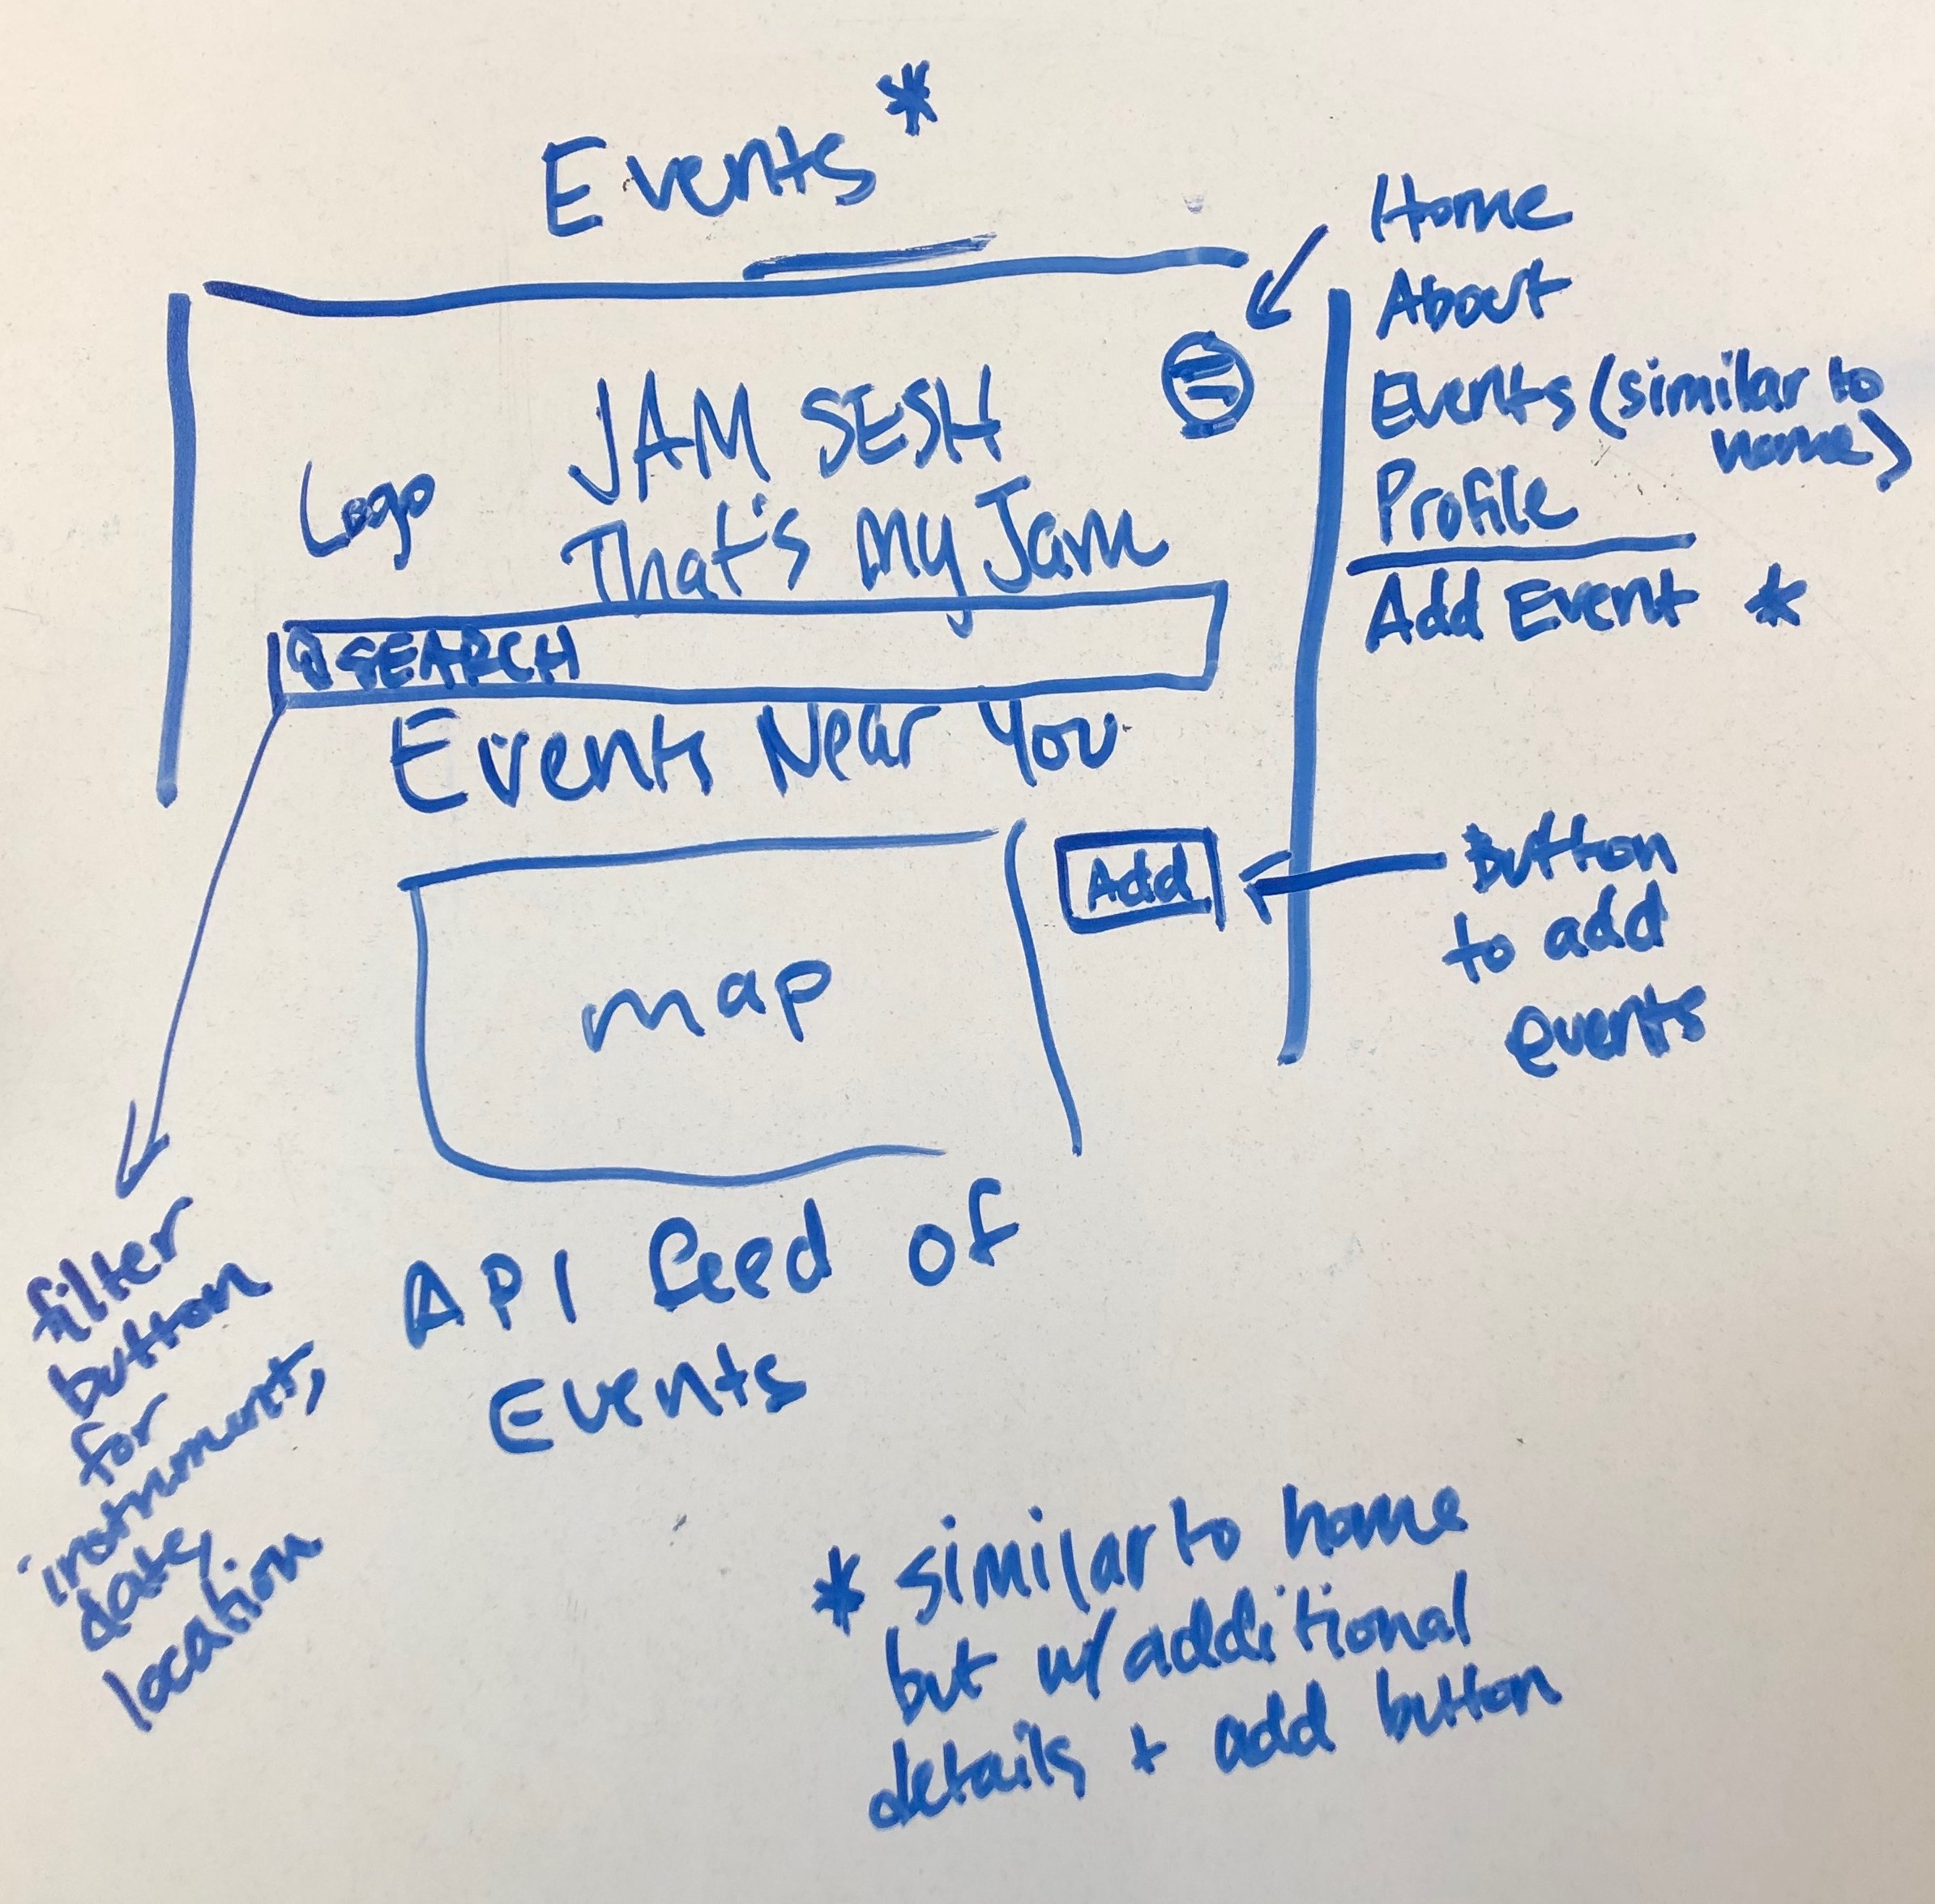 Events *
Home
About
Events (similar to
home)
Profile
Add Event *
JAM SESH
Logo
That's my Jam
SEARCH
Events Near You
Add
Button
to add
events
map
filter
button
for
instrument,
date,
location
API feed of
Events
* similar to home
but w/ additional
details + add button